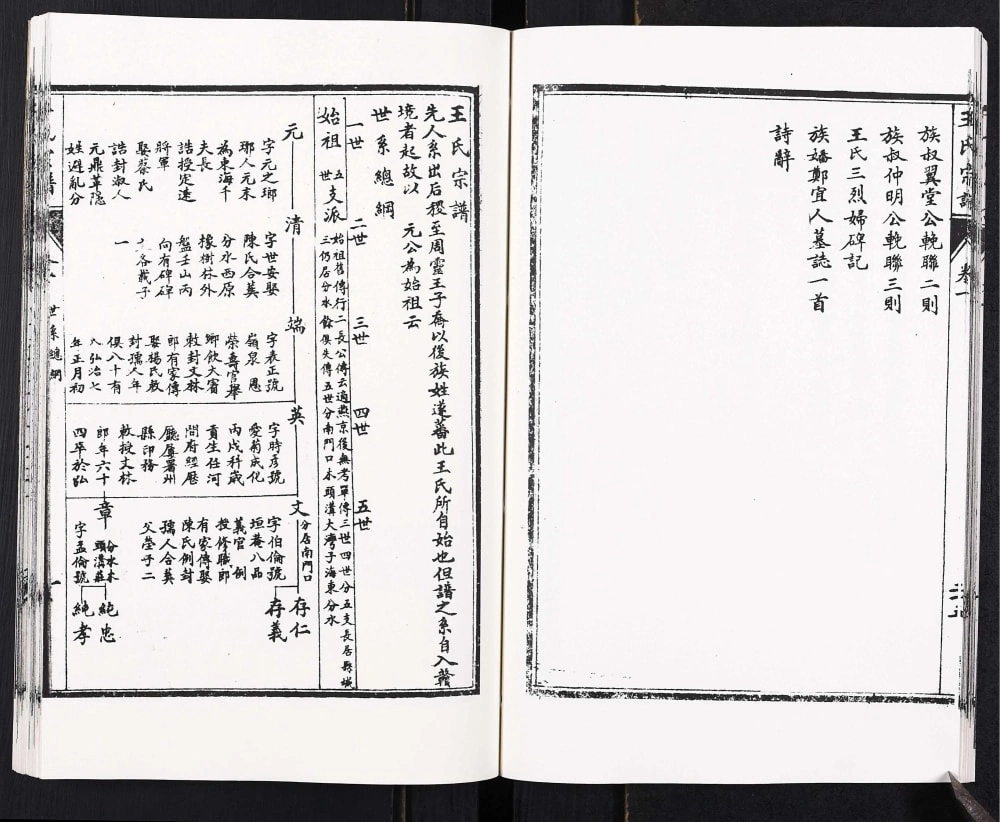 王氏宗譜
卷一
族叔翼堂公輓聯二則
族叔仲明公輓聯三則
王氏三烈婦碑記
族嬸鄭宜人墓誌一首
詩辭
王氏宗譜
先人系出后稷至周靈王子喬以後族姓遂蕃此王氏所自始也但譜之系自入贛
境者起故以 元公為始祖云
世系總綱
一世 二世 三世 四世 五世
始祖 五世支派
始祖舊傳行二長公傳云適燕京後無考單傳三世四世分五支長居縣城
三仍居分水餘俱失傳五世分南門口本頭溝大灣子海東分水
元
字元之瑯
瑯人元末
為東海千
夫長
誥授定遠
將軍
娶蔡氏
誥封淑人
元鼎革隱
姓避亂分
清
字世安娶
陳氏合葬
分水西原
橡樹林外
盤壬山丙
向有碑碑
各載子
一
端
字表正號
嶺泉 恩
榮壽官舉
鄉飲大賓
敕封文林
郎有家傳
娶楊氏敕
封孺人年
俱八十有
八弘治七
年正月初
英
字時彥號
愛菊成化
丙戌科歲
貢生任河
間府經歷
廳屢署州
縣印務
敕授文林
郎年六十
四卒於弘
文
分居南門口
字伯倫號
垣菴八品
義官 例
授修職郎
有家傳娶
陳氏例封
孺人合葬
父塋子二
存仁
存義
章
分水本
頭溝莊
字孟倫號
純忠
純孝
世系總綱